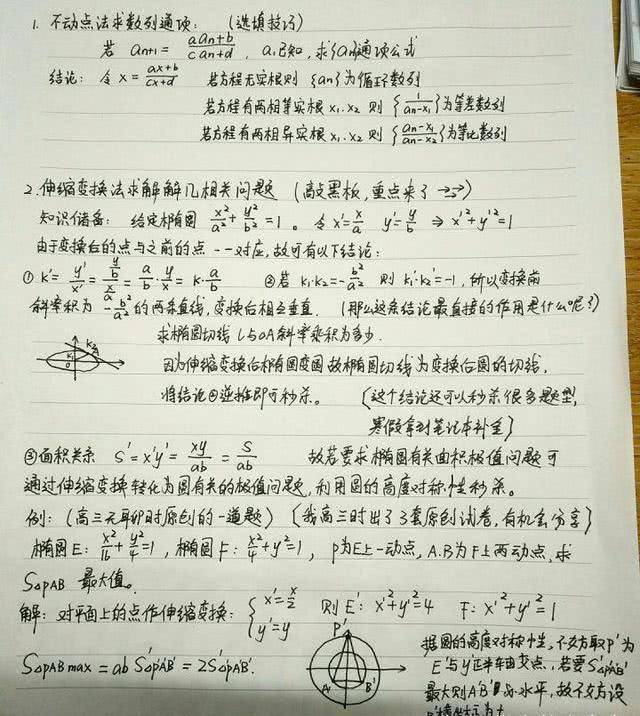 1. 不动点法求数列通项: (选填技巧)
若 an+1 = (a an+b)/(c an+d), a1已知, 求{an}通项公式
结论: 令 x = (ax+b)/(cx+d) 若方程无实根则 {an}为循环数列
若方程有两相等实根 x1. x2 则 {1/(an-x1)}为等差数列
若方程有两相异实根 x1. x2 则 {(an-x1)/(an-x2)}为等比数列
2. 伸缩变换法求解解几相关问题 (敲黑板, 重点来了 →→)
知识储备: 给定椭圆 x²/a² + y²/b² = 1。令 x' = x/a y' = y/b ⇒ x'² + y'² = 1
由于变换后的点与之前的点一一对应, 故可有以下结论:
① k' = y'/x' = (y/b)/(x/a) = a/b · y/x = k · a/b ②若 k1·k2 = -b²/a² 则 k1'·k2' = -1, 所以变换前
斜率积为 -b²/a² 的两条直线, 变换后相互垂直. (那么这条结论最直接的作用是什么呢?)
求椭圆切线 l 与 OA 斜率乘积为多少.
因为伸缩变换后椭圆变圆, 故椭圆切线为变换后圆的切线,
将结论②逆推即可秒杀。 (这个结论还可以秒杀很多题型,
寒假拿到笔记本补全)
③面积关系 S' = x'y' = xy/ab = S/ab 故若要求椭圆有关面积极值问题可
通过伸缩变换转化为圆有关的极值问题, 利用圆的高度对称性秒杀。
例: (高三无聊时原创的一道题) (我高三时出了3套原创试卷, 有机会分享)
椭圆E: x²/16 + y²/4 = 1, 椭圆F: x²/4 + y² = 1, P为E上一动点, A.B为F上两动点, 求
S△PAB 最大值。
解: 对平面上的点作伸缩变换: { x' = x/2 y' = y 则 E': x'² + y'² = 4 F: x'² + y'² = 1
P'
A' B'
S△PAB max = ab S△P'A'B' = 2S△P'A'B'.
据圆的高度对称性, 不妨取P'为
E'与y正半轴交点, 若要S△P'A'B'
最大则A'B'必水平, 故不妨设